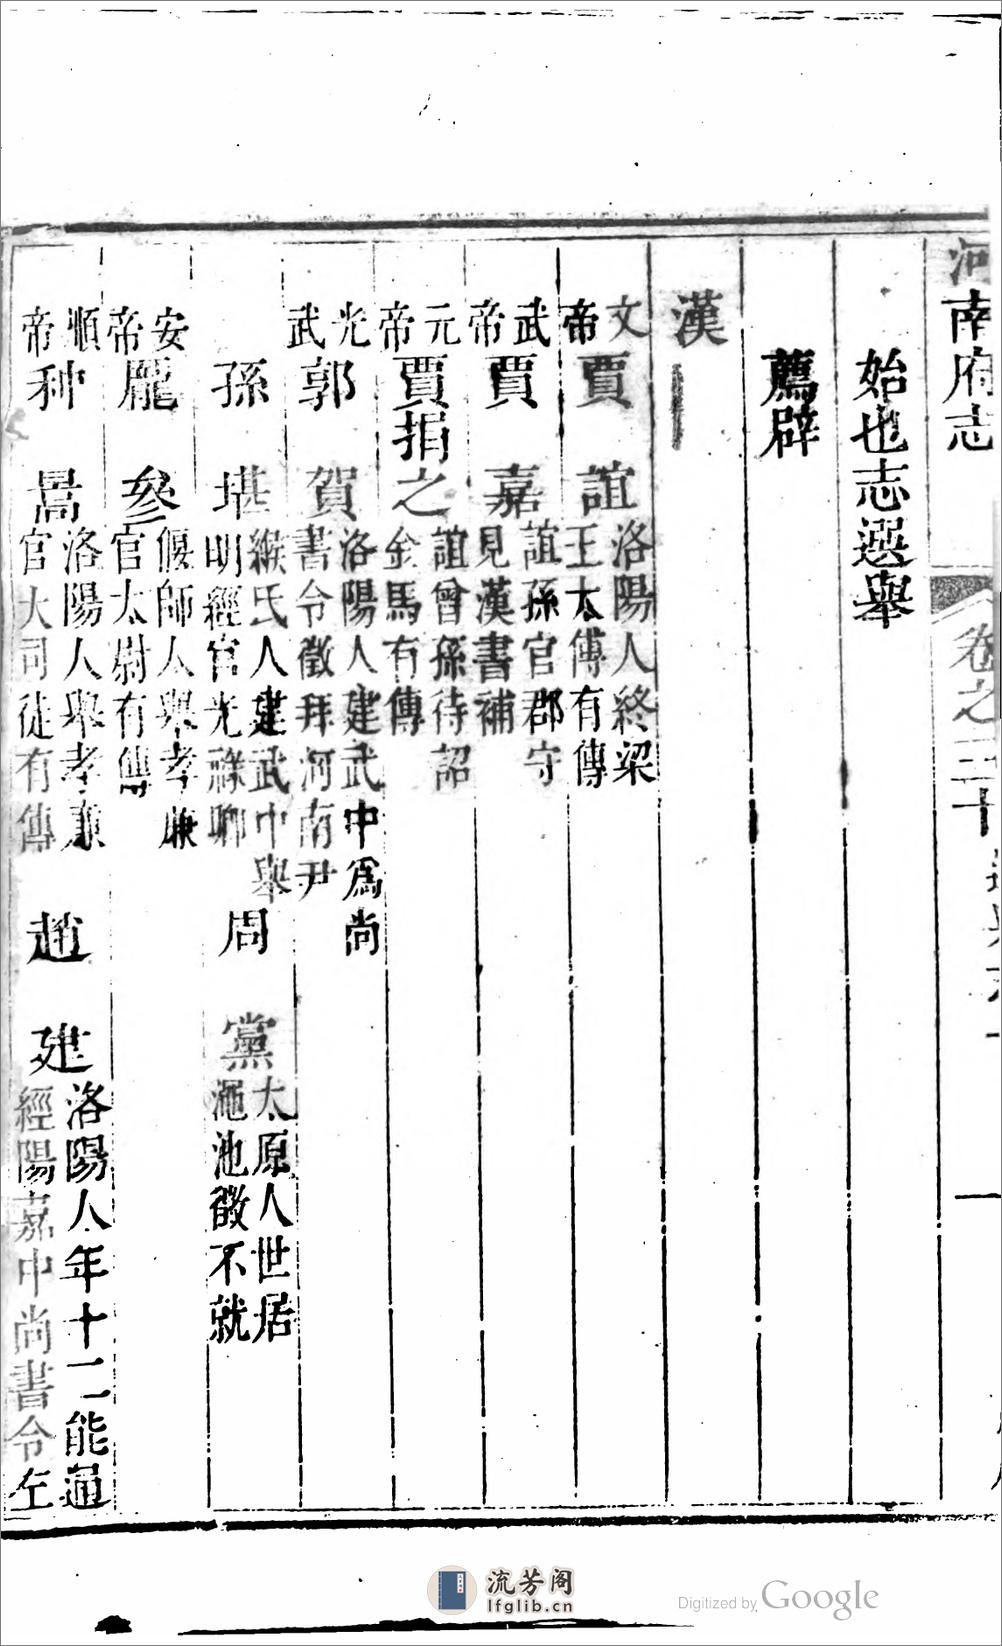 河南府志 卷之二十
始也志選舉
薦辟
漢
文帝 賈誼 洛陽人終梁王太傅有傳
武帝 賈嘉 誼孫官郡守見漢書補
元帝 賈捐之 誼曾孫待詔金馬有傳
光武 郭賀 洛陽人建武中爲尚書令徵拜河南尹
孫堪 緱氏人建武中舉明經官光祿卿 周黨 太原人世居澠池徵不就
安帝 龐參 偃師人舉孝廉官太尉有傳
順帝 种暠 洛陽人舉孝廉官大司徒有傳 趙建 洛陽人年十二能通經陽嘉中尚書令左
流芳阁
lfglib.cn
Digitized by Google